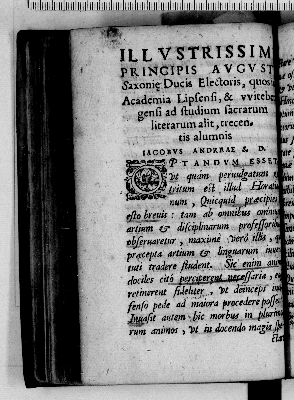 ILLVSTRISSIM
PRINCIPIS AVGVST
Saxonię Ducis Electoris, quos
Academia Lipsensi, & vviteber
gensi ad studium sacrarum
literarum alit, trecen
tis alumnis
IACOBVS ANDREAE S. D.
OPTANDVM ESSET
vt quàm peruulgatum
tritum est illud Horatia
num, Quicquid præcipies
esto breuis: tam ab omnibus omnium
artium & disciplinarum professoribus
obseruaretur, maximè verò illis, qui
præcepta artium & linguarum iuuen
tuti tradere student. Sic enim animi
dociles citò perciperent necessaria, &
retinerent fideliter, vt deinceps in
fenso pede ad maiora procedere possent
Inuasit autem hic morbus in plurimo
rum animos, vt in docendo magis